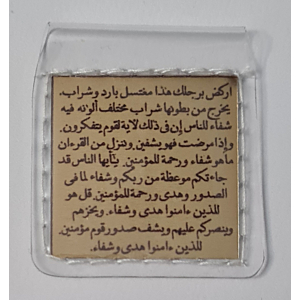 اركض برجلك هذا مغتسل بارد وشراب.
يخرج من بطونها شراب مختلف ألونه فيه
شفاء للناس إن فى ذلك لاية لقوم يتفكرون.
وإذا مرضت فهو يشفين. وننزل من القرءان
ما هو شفاء ورحمة للمؤمنين. يأيها الناس قد
جاءتكم موعظة من ربكم وشفاء لما فى
الصدور وهدى ورحمة للمؤمنين. قل هو
للذين ءامنوا هدى وشفاء. ويخزهم
وينصركم عليهم ويشف صدور قوم مؤمنين.
للذين ءامنوا هدى وشفاء.